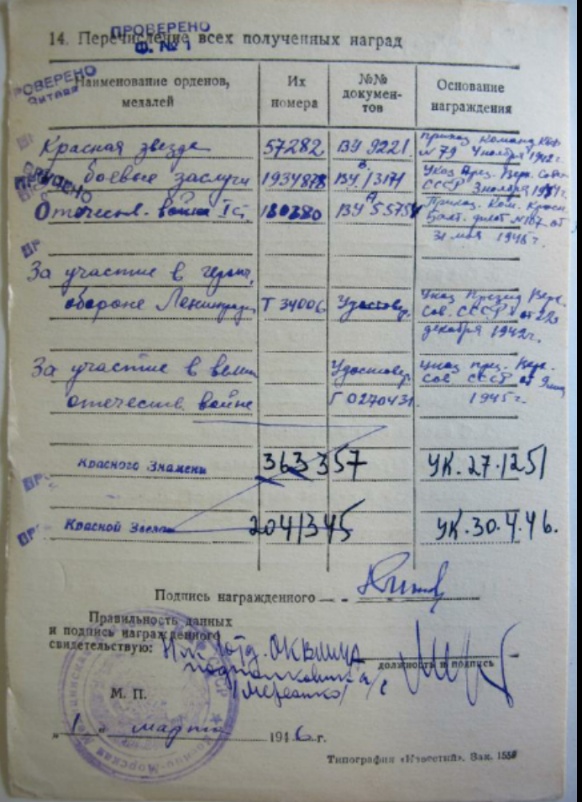 ПРОВЕРЕНО
Ф. № 1
14. Перечисление всех полученных наград
ПРОВЕРЕНО
Наименование орденов, медалей
Их номера
№№ документов
Основание награждения
Красная звезда 57282 ВУ 9221 Приказ Команд.
№ 79 4 ноября 1942 г.
боевые заслуги 1934878 ВУ 13171 Указ През. Верх. Совет
СССР 3 ноября 1944 г.
Отечеств. война Iст. 180380 ВУ 55754 Приказ. Ком. Красн.
Балт. флот № 107 от
31 мая 1945 г.
За участие в героич.
обороне Ленинград Т 34006 Удостовер. Указ Презид Верх.
Сов. СССР от 22
декабря 1942 г.
За участие в велик Удостовер Указ през. Верх.
Сов СССР от 9 мая
отечеств. войне Г 0270431 1945 г.
Красного Знамени 363357 УК.27.1251
Красной Звезды 2041345 УК.30.4.46.
Подпись награжденного
Правильность данных
и подпись награжденного
свидетельствую:
подполковник а/с
должность и подпись
М. П.
„1" марта 1946 г.
Типография «Известий». Зак. 1558